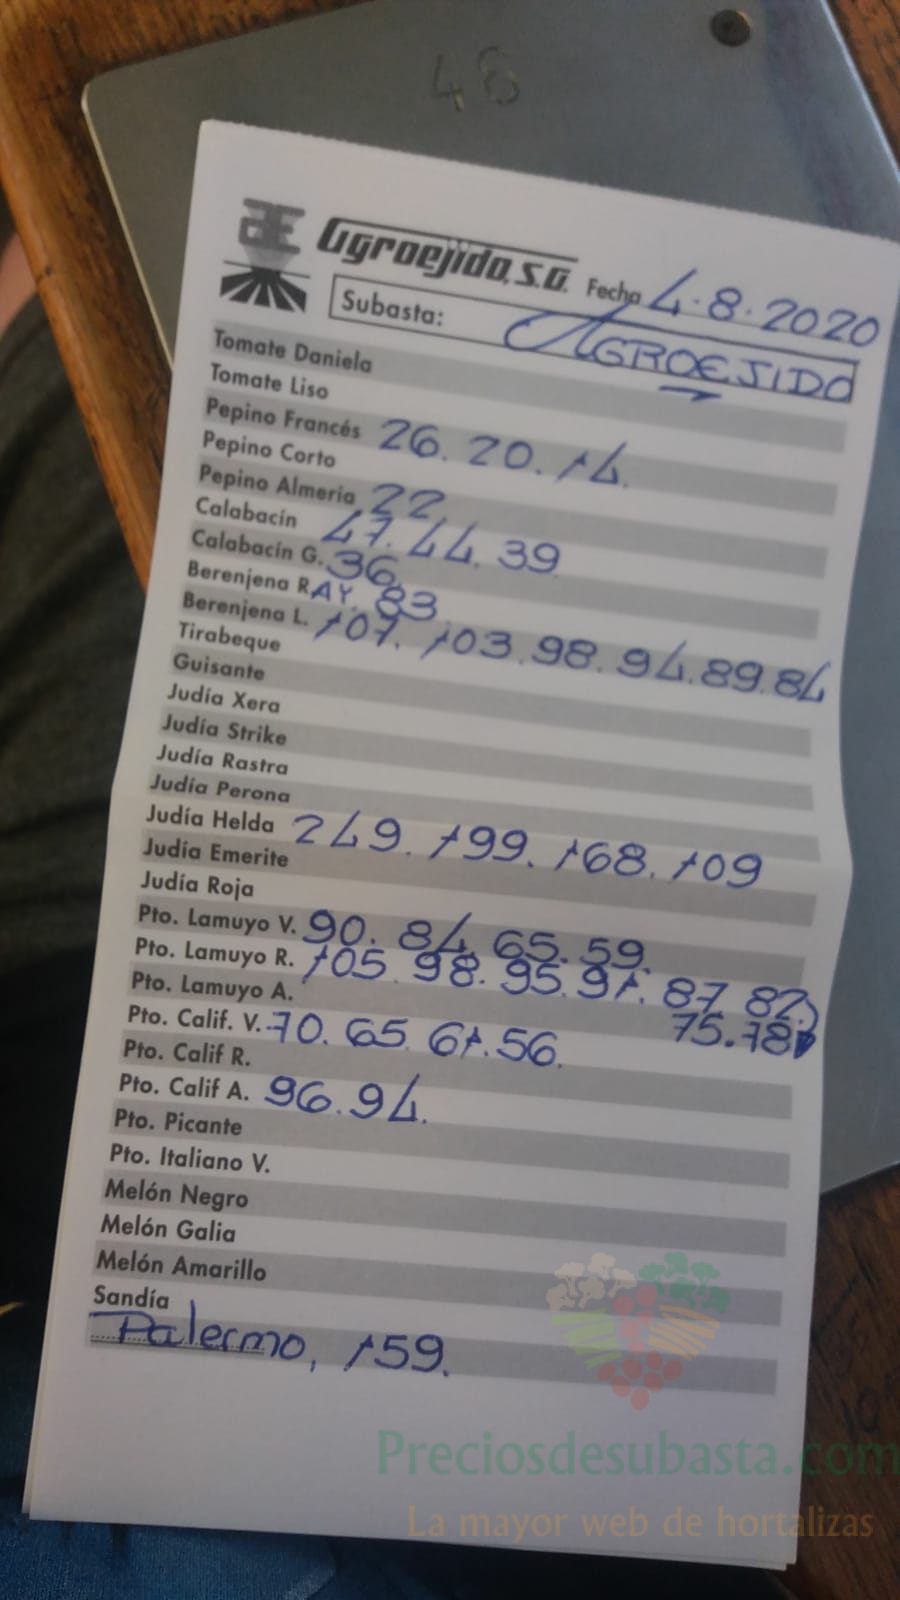 46
AE
Agroejido, S.A. Fecha 4.8.2020
Subasta: AGROEJIDO
Tomate Daniela
Tomate Liso
Pepino Francés 26. 20. 14.
Pepino Corto
Pepino Almería 22
Calabacín 47. 44. 39
Calabacín G. 36.
Berenjena R. AY. 83.
Berenjena L. 107. 103. 98. 94. 89. 84
Tirabeque
Guisante
Judía Xera
Judía Strike
Judía Rastra
Judía Perona
Judía Helda 249. 199. 168. 109
Judía Emerite
Judía Roja
Pto. Lamuyo V. 90. 84. 65. 59.
Pto. Lamuyo R. 105. 98. 95. 91. 87. 82.
75. 78
Pto. Lamuyo A.
Pto. Calif. V. 70. 65. 61. 56.
Pto. Calif R.
Pto. Calif A. 96. 94.
Pto. Picante
Pto. Italiano V.
Melón Negro
Melón Galia
Melón Amarillo
Sandía
Palermo, 159.
Preciosdesubasta.com
La mayor web de hortalizas